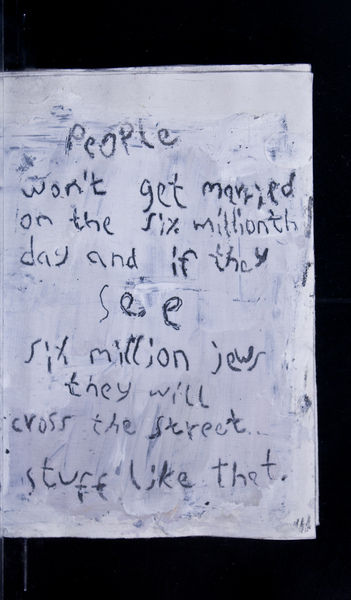 People
won't get married
on the six millionth
day and if they
see
six million jews
they will
cross the street..
stuff like that.